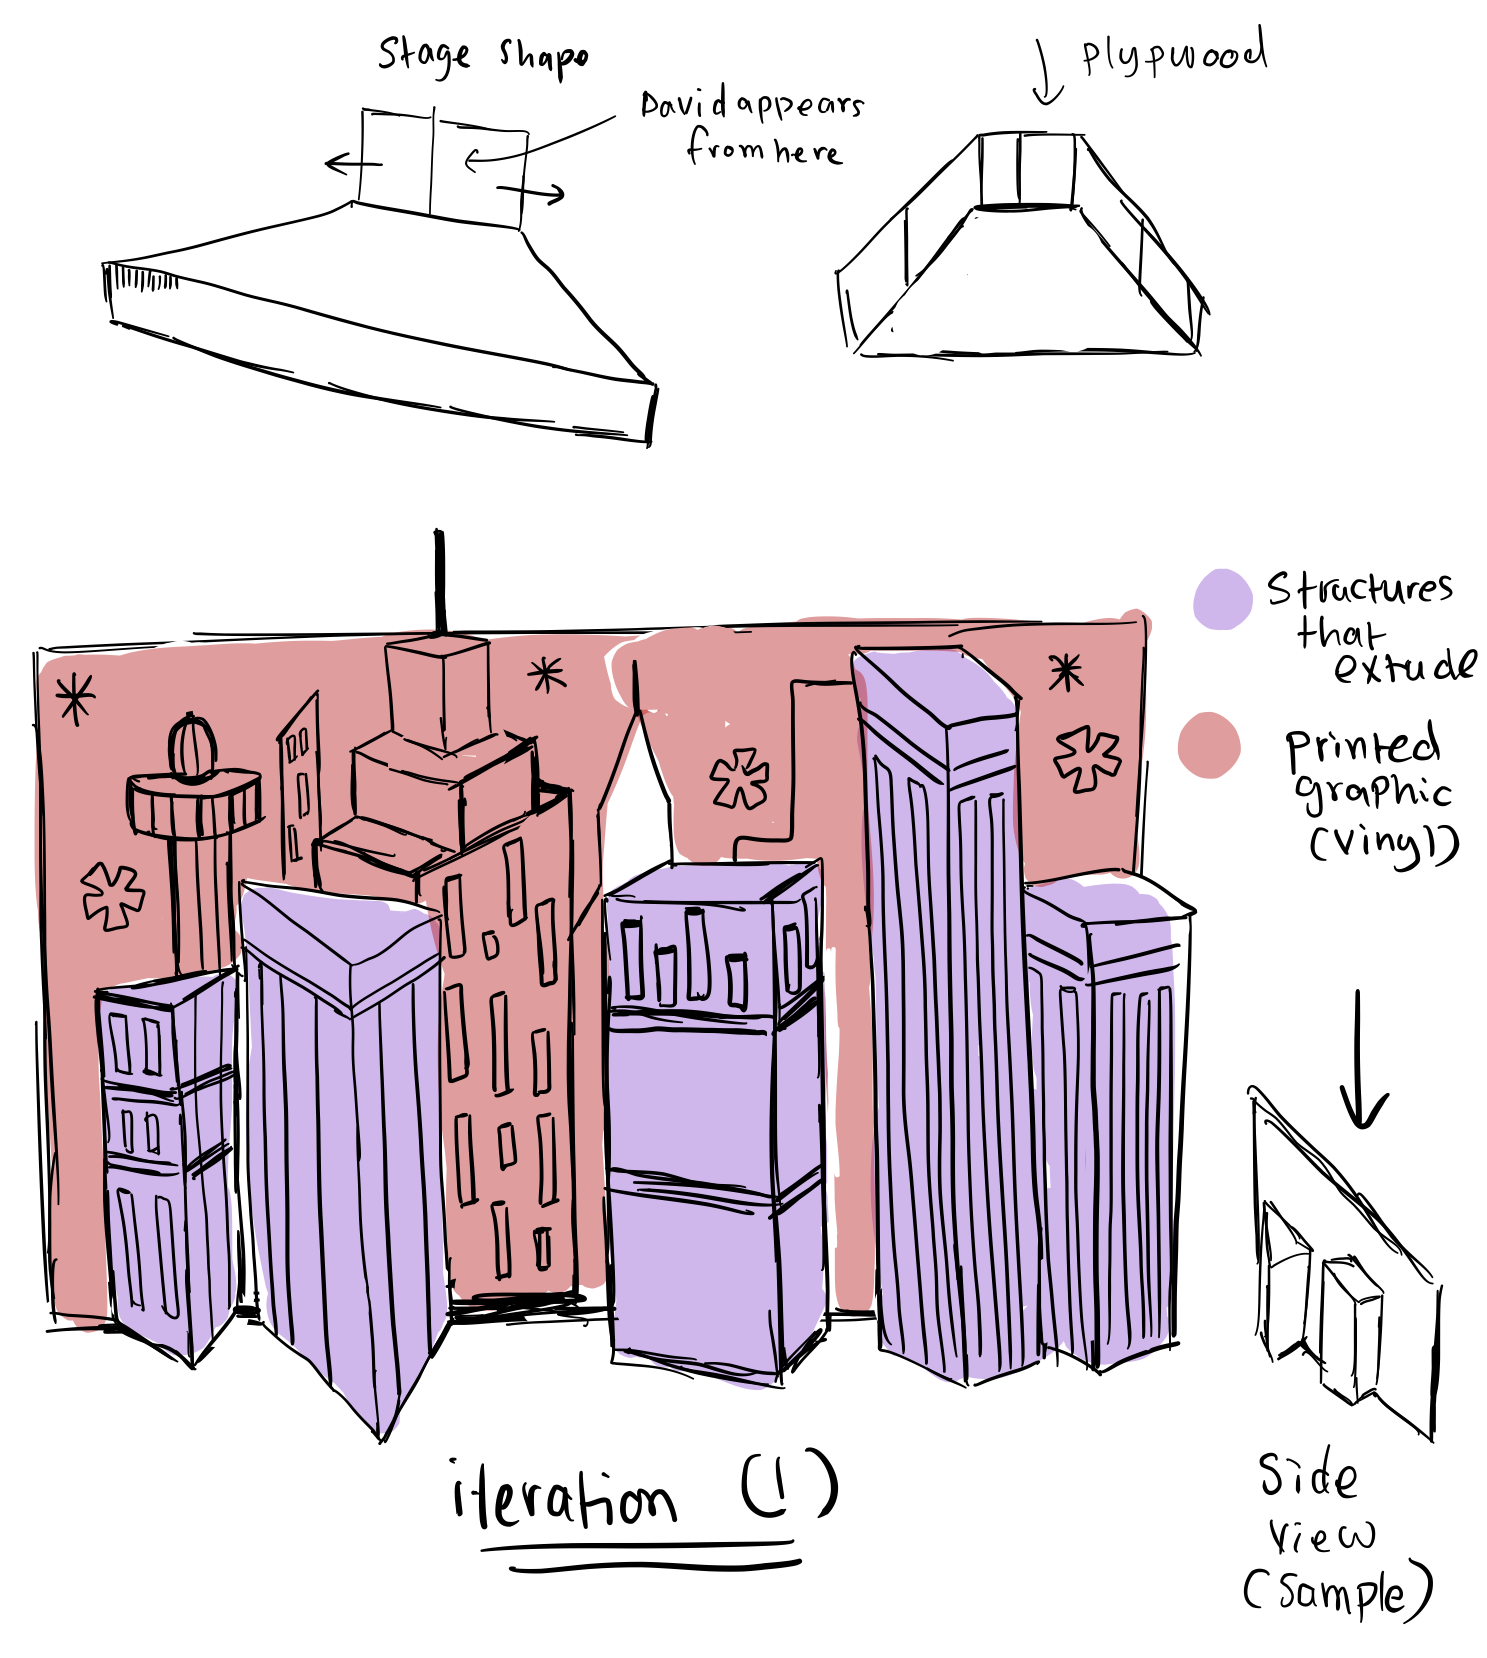 Stage shape
David appears
from here
plypwood
Structures
that
extrude
printed
graphic
(vinyl)
iteration (1)
Side
view
(sample)